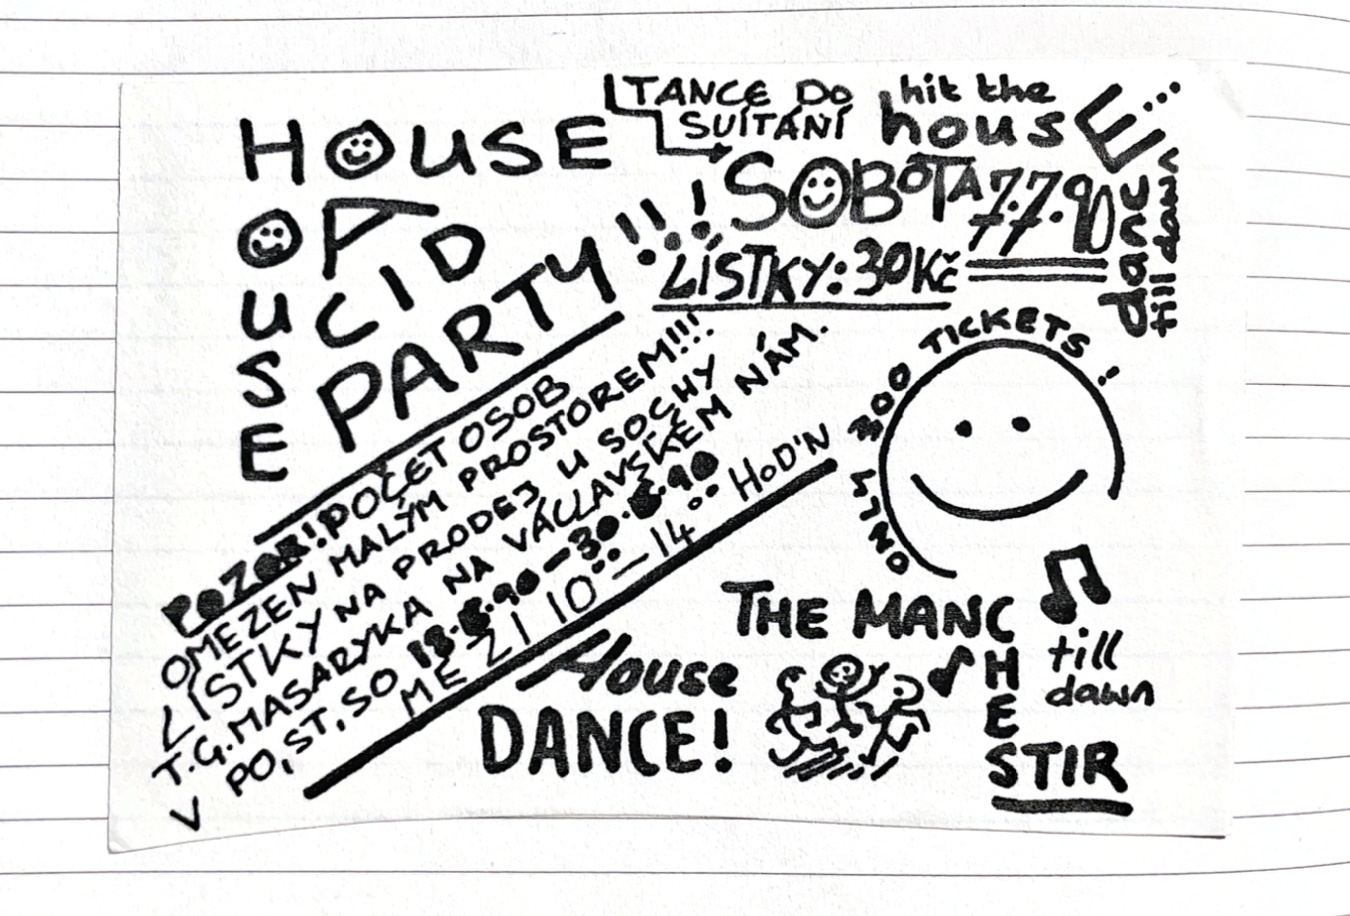 HOUSE
HOUSE
ACID
PARTY!!!
TANCE DO
SVÍTÁNÍ
hit the
housE...
SOBOTA 7.7.90
LÍSTKY: 30Kč
dance
till dawn
POZOR! POČET OSOB
OMEZEN MALÝM PROSTOREM!!!!
LÍSTKY NA PRODEJ U SOCHY
T.G. MASARYKA NA VÁCLAVSKÉM NÁM.
V PO, ST, SO 18.6.90–30.6.90
MEZI 10°°–14°° HOD'N
ONLY 300 TICKETS!
House
DANCE!
THE MANCHESTIR
till
dawn